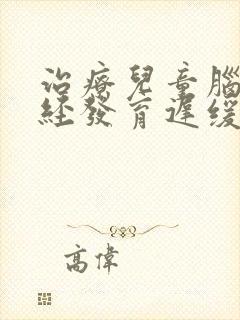 治療兒童腦
經發育遲緩
高偉